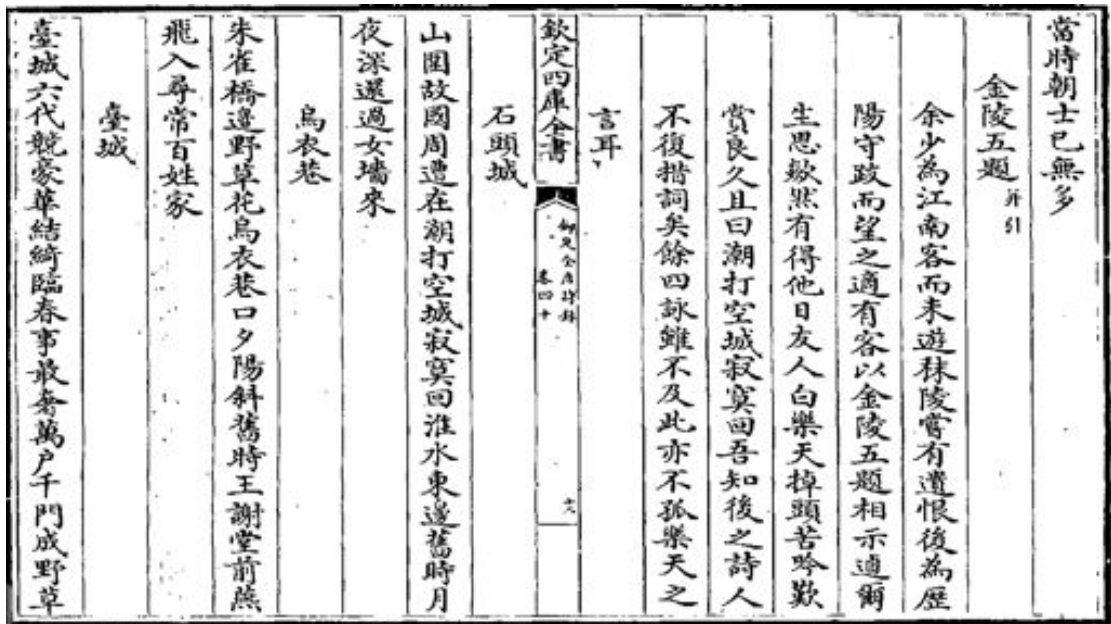 當時朝士已無多
金陵五題并引
余少為江南客而未遊秣陵嘗有遺恨後為歷
陽守跂而望之適有客以金陵五題相示逌爾
生思欻然有得他日友人白樂天掉頭苦吟歎
賞良久且曰潮打空城寂寞回吾知後之詩人
不復措詞矣餘四詠雖不及此亦不孤樂天之
言耳
欽定四庫全書
御定全唐詩錄
卷四十
十六
石頭城
山圍故國周遭在潮打空城寂寞回淮水東邊舊時月
夜深還過女墻來
烏衣巷
朱雀橋邊野草花烏衣巷口夕陽斜舊時王謝堂前燕
飛入尋常百姓家
臺城
臺城六代競豪華結綺臨春事最奢萬户千門成野草